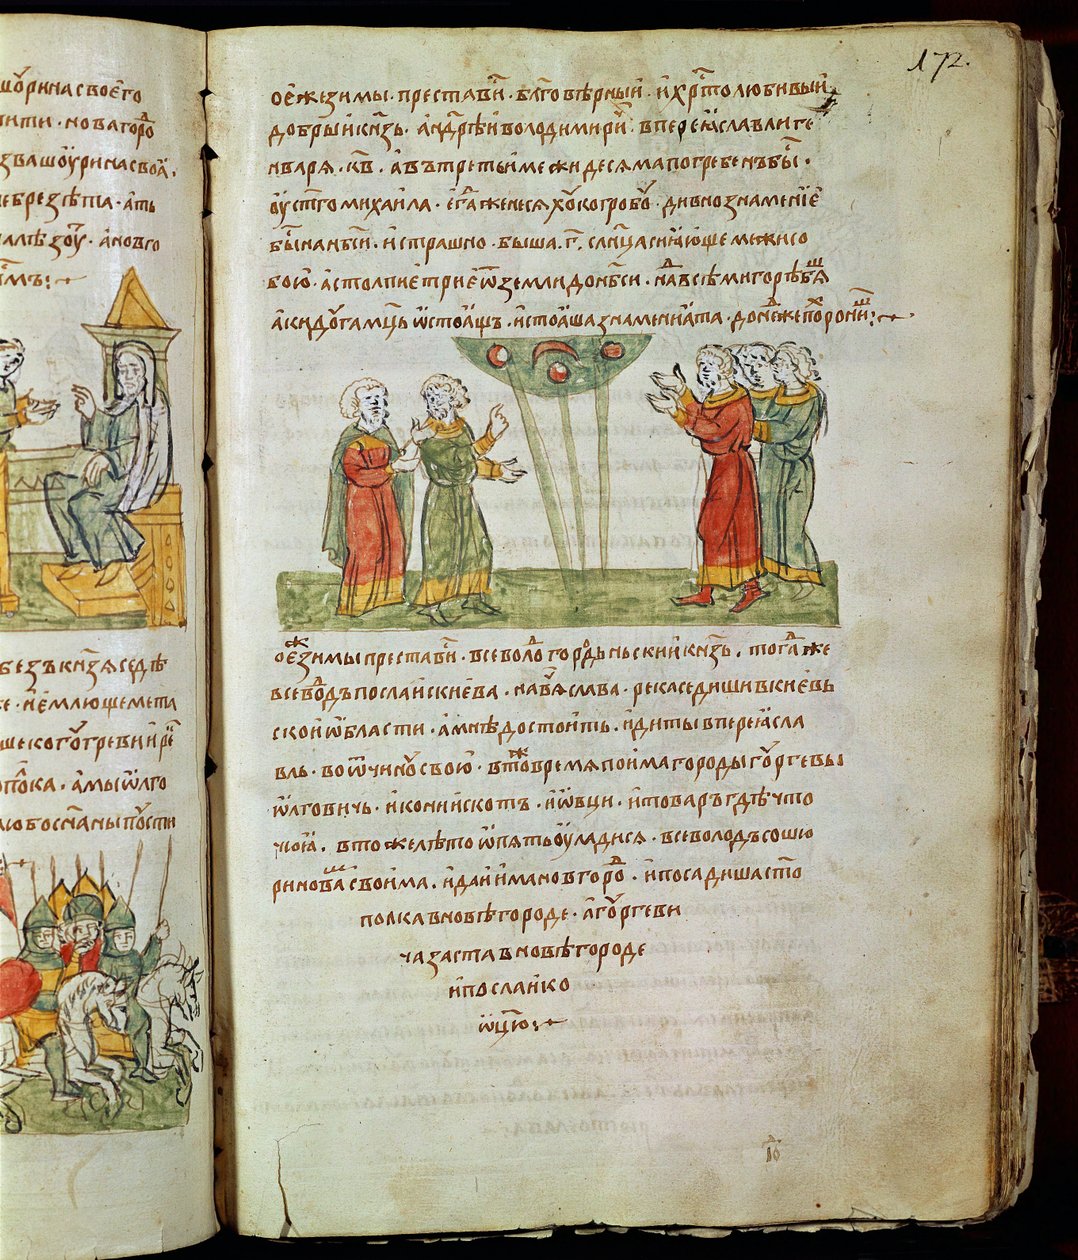 шю́рина своего
ити · новагоро
зва шю́рина своѧ ·
небрезѣта · ать
алѣзоу · а новго
имъ :~
безъ кнѧзѧ седѣ
е · и емлюще мета
ше ко гю́ргеви и рѐ
полка · а мы ѡлго
любо с нами пусти
172.
тоеже зимы · преставис̑ · бл҃говѣрныи · и хр҃столюбивыи
добрыи кнз҃ь · андрѣи володимири · в переꙗславли ге
нварѧ · кв · а въ третьи межи десѧма погребенъ бы̑ ·
оу ст҃го михаила · егда же несѧхоу к гробоу · дивно знамение
бы̑ на нб҃си · и страшно · быша · г҃ · сл҃нца сиꙗюще межи со
бою · а столпие трие ѿ земли до нб҃си · надъ всѣми горѣ бѧш
аки дуга мц҃ь ѡ стоꙗщь · и стоꙗша знамениꙗ та · дондеже похорониша :~
тоеже зимы преставис̑ · всеволодъ городеньскии кнз҃ь · тогда же
всеводъ посла ис киева · на вѧслава · река седиши в киевь
скои ѡбласти · а мнѣ достоить · иди ты в переꙗсла
вль · во ѿчину свою · в тоже времѧ поима городы гюргевы
ѡлговичь · и кони и скотъ · и ѡвци · и товаръ гдѣ что
чюꙗ · в то же лѣто ѡпѧть оуладисѧ · всеволодъ с шю
ринома своима · и даи има новгородъ · и посадиша сто
полка в новѣгороде · а гюргеви
ча заста в новѣгороде
и посла и ко
ѡц҃ю :~